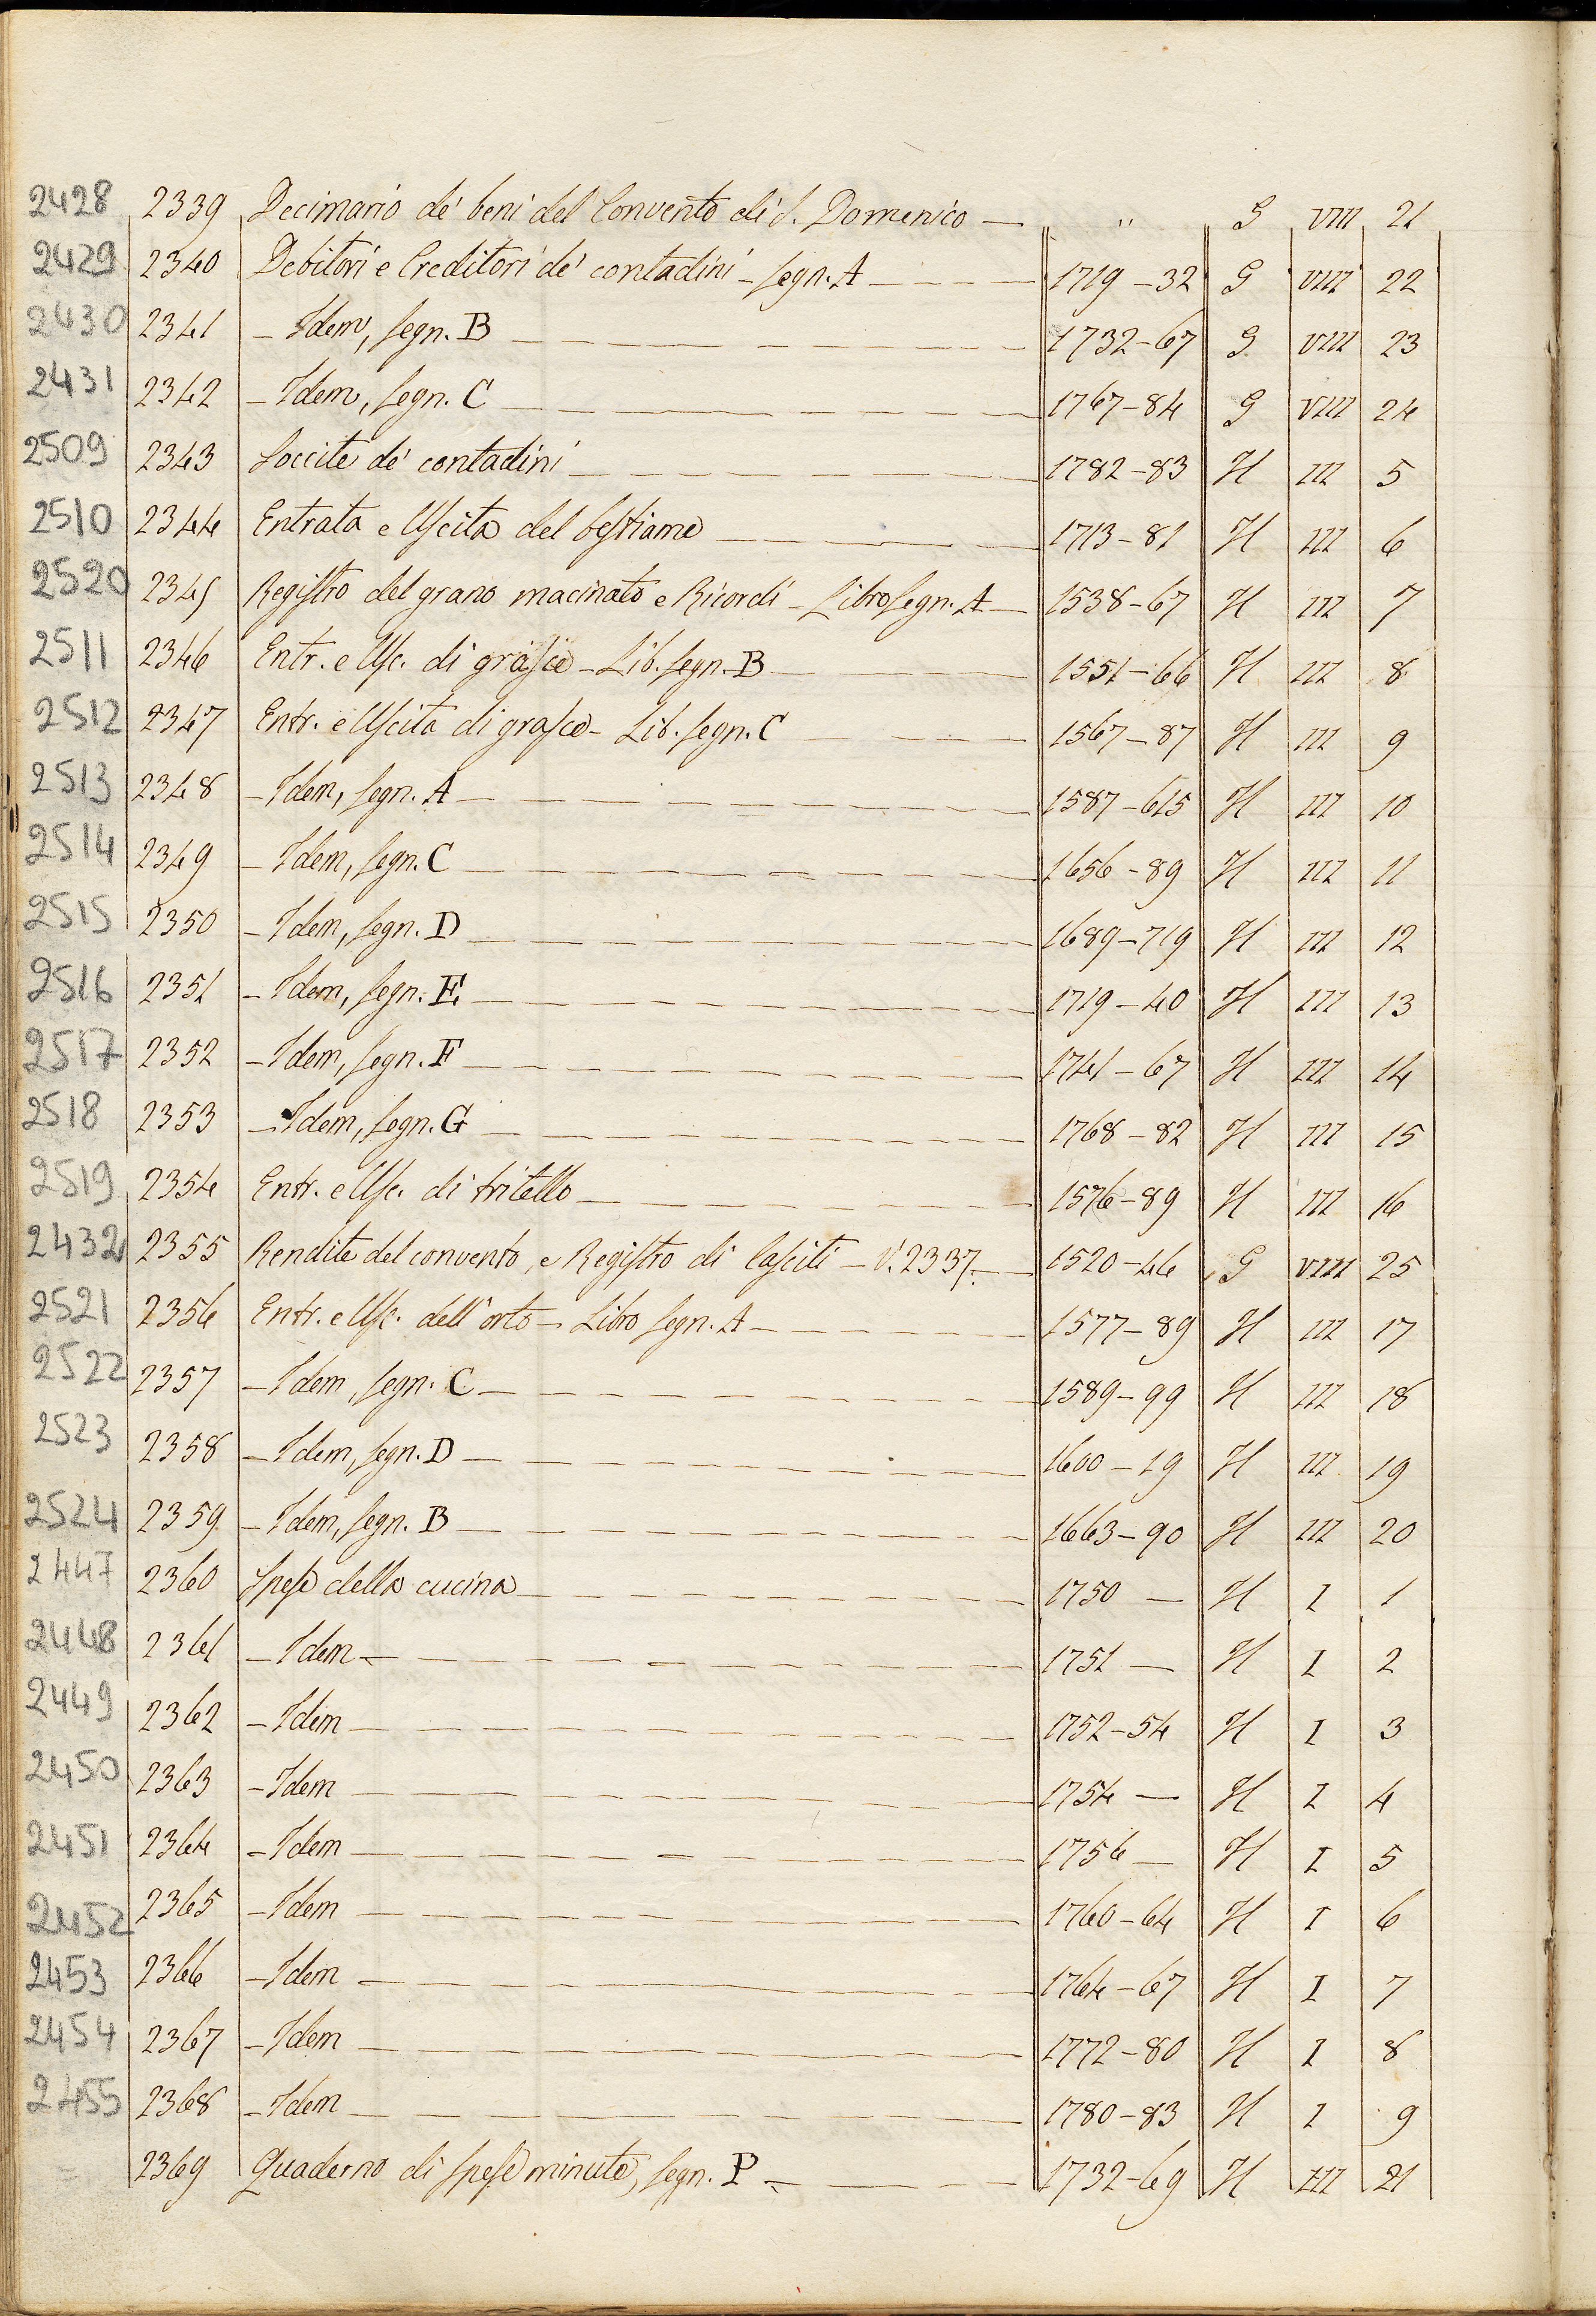 2428 2339 Decimario de' beni del Convento di S. Domenico — " G VIII 21
2429 2340 Debitori e Creditori de' contadini - segn. A — 1719-32 G VIII 22
2430 2341 - Idem, segn. B — 1732-67 G VIII 23
2431 2342 - Idem, segn. C — 1767-84 G VIII 24
2509 2343 Soccite de' contadini — 1782-83 H III 5
2510 2344 Entrata e Uscita del bestiame — 1713-81 H III 6
2520 2345 Registro del grano macinato e Ricordi - Libro segn. A — 1538-67 H III 7
2511 2346 Entr. e Usc. di grasce - Lib. segn. B — 1551-66 H III 8
2512 2347 Entr. e Uscita di grasce - Lib. segn. C — 1567-87 H III 9
2513 2348 - Idem, segn. A — 1587-615 H III 10
2514 2349 - Idem, segn. C — 1656-89 H III 11
2515 2350 - Idem, segn. D — 1689-719 H III 12
2516 2351 - Idem, segn. E — 1719-40 H III 13
2517 2352 - Idem, segn. F — 1741-67 H III 14
2518 2353 - Idem, segn. G — 1768-82 H III 15
2519 2354 Entr. e Usc. di tritello — 1576-89 H III 16
2432 2355 Rendite del convento, e Registro di lasciti - V. 2337. — 1520-46 G VIII 25
2521 2356 Entr. e Usc. dell'orto - Libro segn. A — 1577-89 H III 17
2522 2357 - Idem, segn. C — 1589-99 H III 18
2523 2358 - Idem, segn. D — 1600-19 H III 19
2524 2359 - Idem, segn. B — 1663-90 H III 20
2447 2360 Spese della cucina — 1750 — H I 1
2448 2361 - Idem — 1751 — H I 2
2449 2362 - Idem — 1752-54 H I 3
2450 2363 - Idem — 1754 — H I 4
2451 2364 - Idem — 1756 — H I 5
2452 2365 - Idem — 1760-64 H I 6
2453 2366 - Idem — 1764-67 H I 7
2454 2367 - Idem — 1772-80 H I 8
2455 2368 - Idem — 1780-83 H I 9
2369 Quaderno di spese minute, segn. P — 1732-69 H III 21